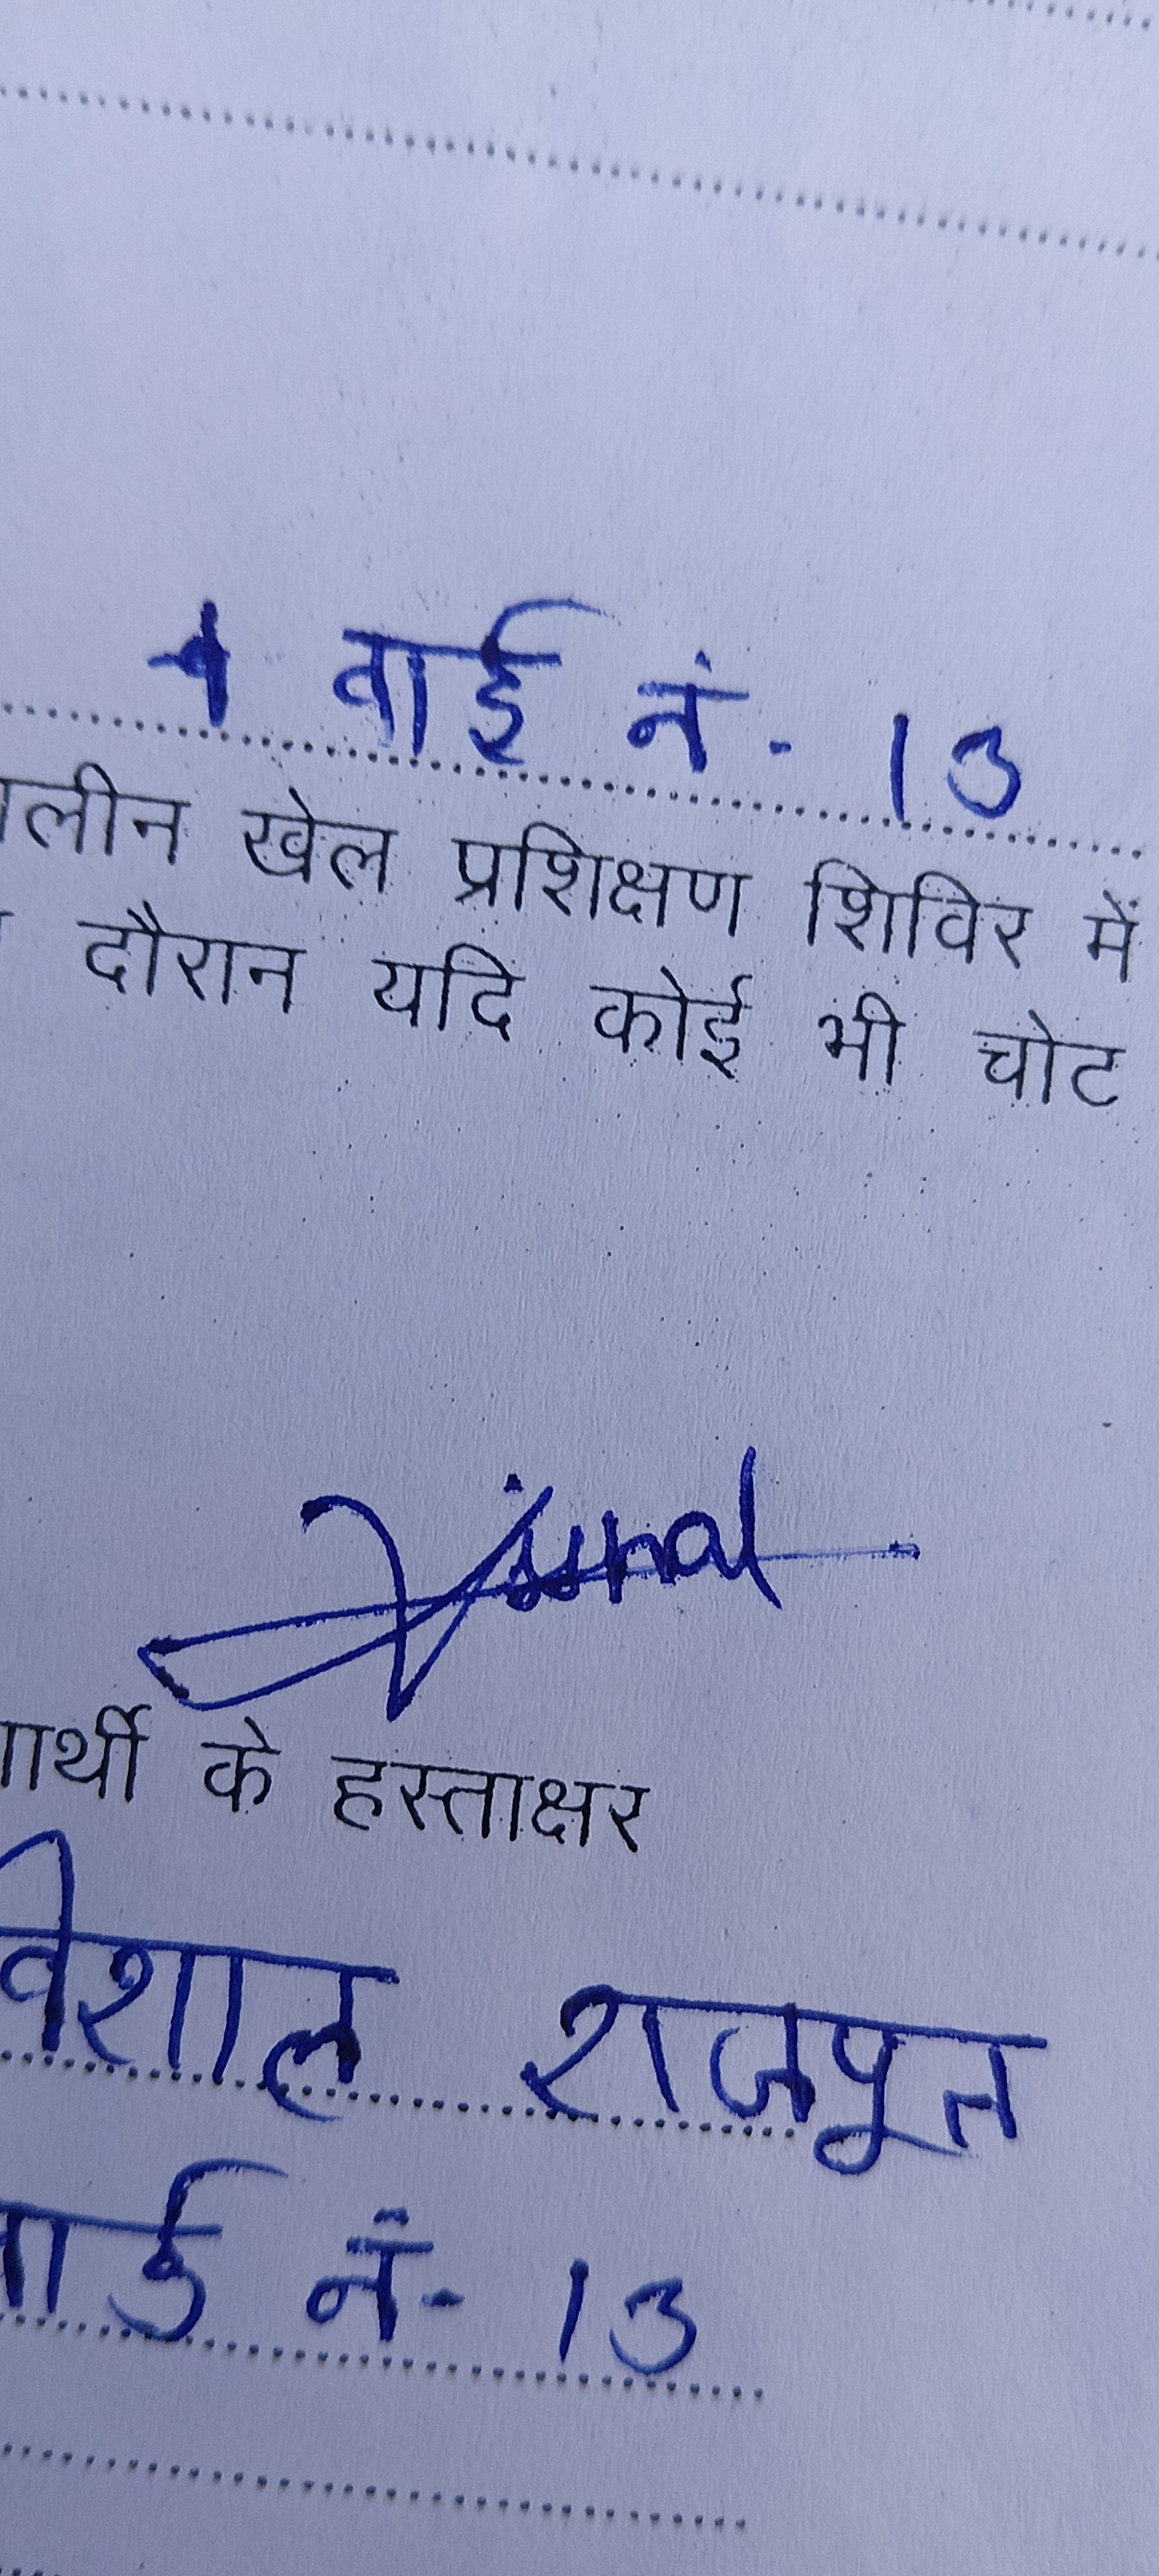 वार्ड नं - 13
ालीन खेल प्रशिक्षण शिविर में
दौरान यदि कोई भी चोट
ार्थी के हस्ताक्षर
विशाल राजपूत
वार्ड नं - 13